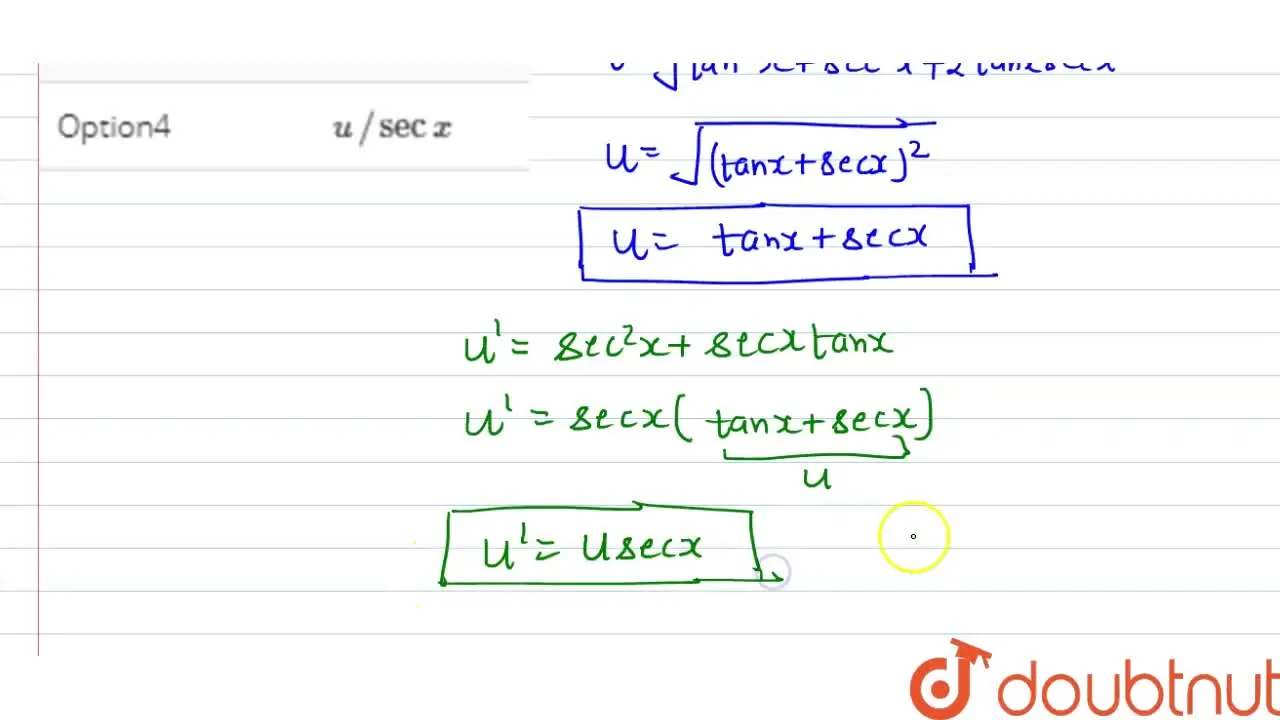 Option4 u / sec x
u = √(tanx+secx)²
u = tanx + secx
u' = sec²x + secx tanx
u' = secx ( tanx+secx )
u
u' = u secx
doubtnut